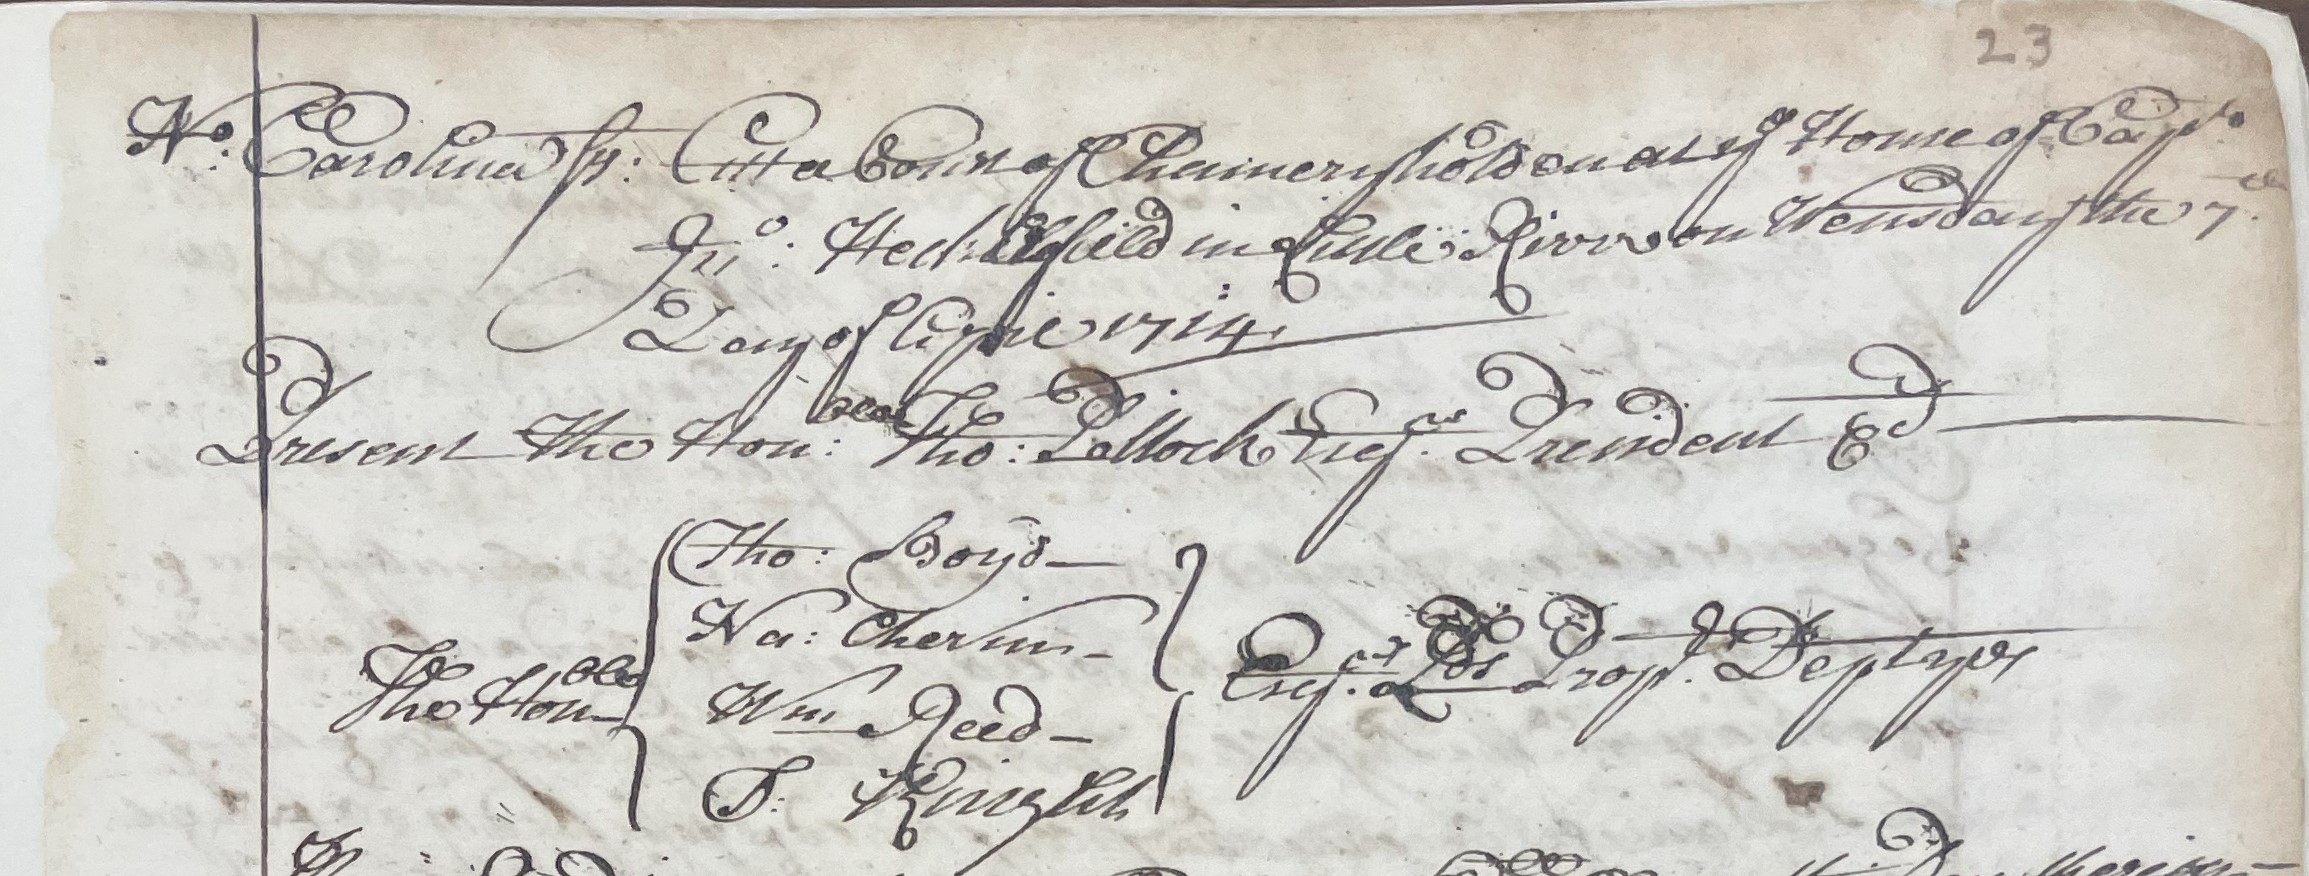 23
No: Carolina ss: Att a Court of Chancery holden at ye House of Capto
Jno: Hecklefeild in Little River on Wensday the 7th
Day of Aprie 1714
Present The Hon:ble Tho: Pollock Esqr President &c
Tho: Boyd
Na: Chevin
The Honble Wm Reed Esqrs Lds Propt Deptyes
T: Knight